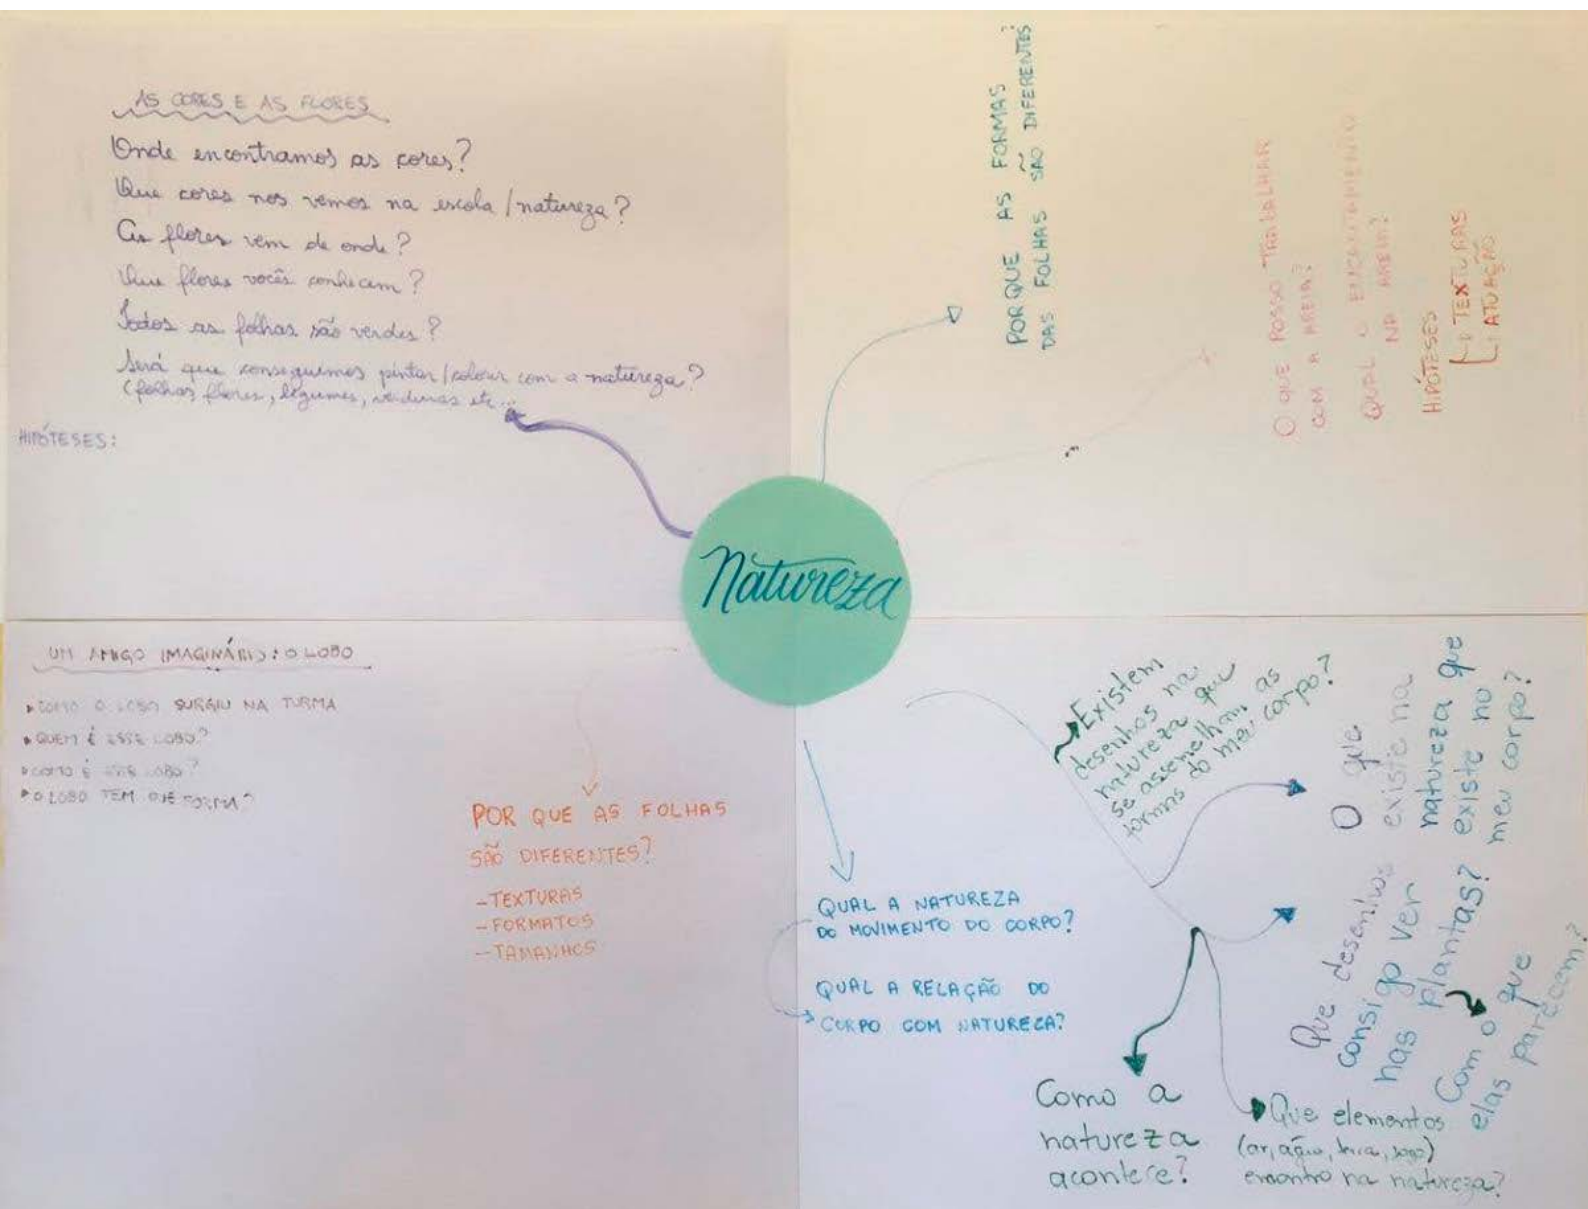 AS CORES E AS FLORES
Onde encontramos as cores?
Que cores nos vemos na escola/natureza?
As flores vem de onde?
Que flores vocês conhecem?
Todos as folhas são verdes?
Será que conseguimos pintar/colorir com a natureza?
(folhas, flores, légumes, verduras etc...
HIPÓTESES:
PORQUE AS FORMAS
DAS FOLHAS SÃO DIFERENTES?
O QUE POSSO TRABALHAR
COM A AREIA?
QUAL O ENCANTAMENTO
NA AREIA?
HIPÓTESES
TEXTURAS
ATUAÇÃO
Natureza
UM AMIGO IMAGINÁRIO: O LOBO
COMO O LOBO SURGIU NA TURMA
QUEM É ESSE LOBO?
COMO É ESSE LOBO?
O LOBO TEM QUE FORMA?
POR QUE AS FOLHAS
SÃO DIFERENTES?
-TEXTURAS
-FORMATOS
-TAMANHOS
QUAL A NATUREZA
DO MOVIMENTO DO CORPO?
QUAL A RELAÇÃO DO
CORPO COM NATUREZA?
Existem
desenhos na
natureza que
se assemelham as
formas do meu corpo?
O que
existe na
natureza que
existe no
meu corpo?
Que desenhos
consigo ver
nas plantas?
Com o que
elas parecem?
Como a
natureza
acontece?
Que elementos
(ar, água, terra, fogo)
encontro na natureza?